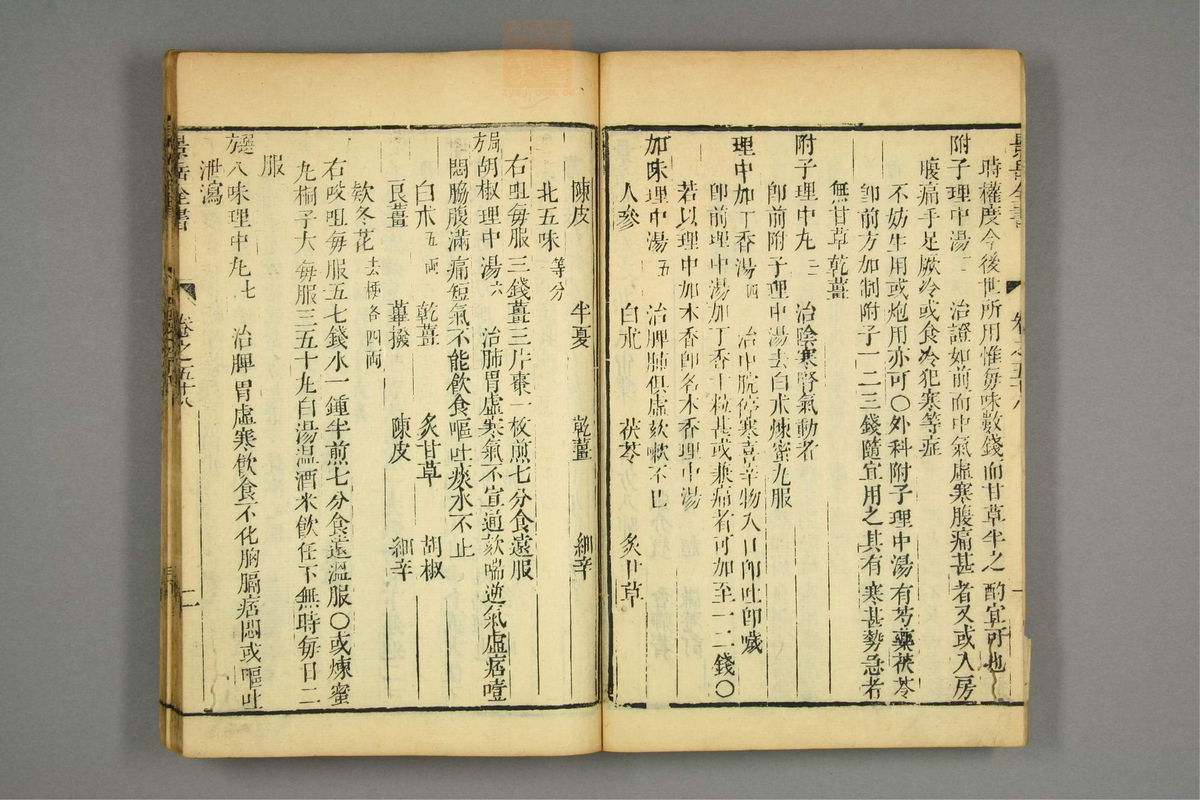 時權度今後世所用惟每味數錢而甘草半之 酌宜可也
附子理中湯一 治證如前而中氣虛寒腹痛甚者又或入房
腹痛手足厥冷或食冷犯寒等症
卽前方加制附子一二三錢隨宜用之其有 寒甚勢急者
不妨生用或炮用亦可〇外科附子理中湯 有芍藥茯苓
無甘草乾薑
附子理中丸二 治陰寒腎氣動者
卽前附子理中湯去白朮煉蜜丸服
理中加丁香湯四 治中脘停寒喜辛物入口卽吐卽噦
卽前理中湯加丁香十粒甚或兼痛者可加至一二錢〇
若以理中加木香卽名木香理中湯
加味理中湯五 治脾肺俱虛欬嗽不已
人參 白朮 茯苓 炙甘草
陳皮 半夏 乾薑 細辛
北五味等分
右咀每服三錢薑三片棗一枚煎七分食遠服
局方胡椒理中湯六 治肺胃虛寒氣不宣通欬喘逆氣虛痞噎
悶脇腹滿痛短氣不能飲食嘔吐痰水不止
白朮五両 乾薑 炙甘草 胡椒
良薑 蓽撥 陳皮 細辛
欵冬花去梗各四両
右㕮咀每服五七錢水一鍾半煎七分食遠溫服〇或煉蜜
丸桐子大每服三五十丸白湯溫酒米飲任下無時每日二
服
選方八味理中丸七 治脾胃虛寒飲食不化胸膈痞悶或嘔吐
泄瀉
景岳全書 卷之五十八 二